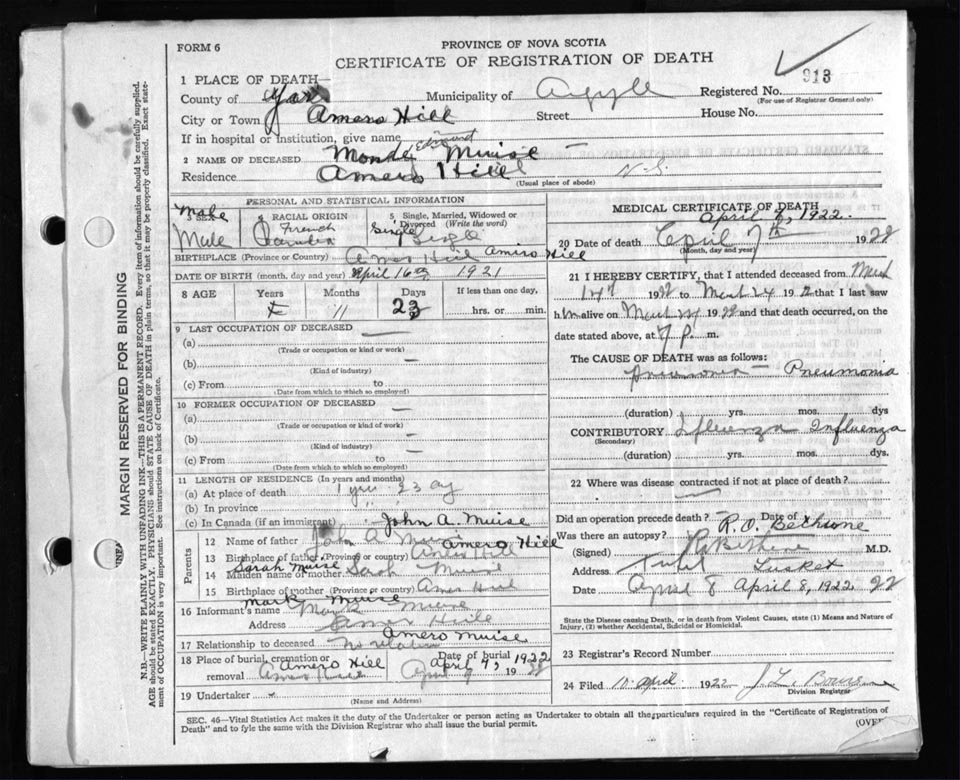 FORM 6
PROVINCE OF NOVA SCOTIA
CERTIFICATE OF REGISTRATION OF DEATH
913
1 PLACE OF DEATH—
County of Yar Municipality of Argyle Registered No.
(For use of Registrar General only)
City or Town Ameros Hill Street House No.
If in hospital or institution, give name
2 NAME OF DECEASED Monde Edmund Muise —
Residence Ameros Hill N.S.
(Usual place of abode)
PERSONAL AND STATISTICAL INFORMATION
3 SEX Male Male
4 RACIAL ORIGIN French
5 Single, Married, Widowed or Divorced (Write the word) Single Single
BIRTHPLACE (Province or Country) Amer Hill Amiro Hill
DATE OF BIRTH (month, day and year) April 16 1921
8 AGE Years Months Days If less than one day,
11 23 hrs. or min.
9 LAST OCCUPATION OF DECEASED —
(a)
(Trade or occupation or kind of work)
(b) —
(Kind of industry)
(c) From to
(Date from which to which so employed)
10 FORMER OCCUPATION OF DECEASED —
(a)
(Trade or occupation or kind of work)
(b) —
(Kind of industry)
(c) From —
(Date from which to which so employed)
11 LENGTH OF RESIDENCE (In years and months)
(a) At place of death 1 yr 23
(b) In province
(c) In Canada (if an immigrant) John A. Muise
Parents
12 Name of father John A Muise Amero Hill
13 Birthplace of father (Province or country) Amero Hill
Sarah Muise
14 Maiden name of mother Sarah Muise
15 Birthplace of mother (Province or country) Amer Hill
Mark Muise
16 Informant's name Mark Muise
or address Amer Hill
Amero Muise
17 Relationship to deceased No relation
18 Place of burial, cremation or removal Amero Hill Amero Hill Date of burial April 9, 1922 April 9 1922
19 Undertaker
(Name and Address)
MEDICAL CERTIFICATE OF DEATH
April 7, 1922.
20 Date of death April 7th 1922
(Month, day and year)
21 I HEREBY CERTIFY, that I attended deceased from March
14th 1922 to March 24 1922 that I last saw
h im alive on March 24 1922 and that death occurred, on
date stated above, at 7 p. m.
The CAUSE OF DEATH was as follows:
Pneumonia — Pneumonia
(duration) yrs. mos. dys
CONTRIBUTORY Influenza Influenza
(Secondary)
(duration) yrs. mos. dys.
22 Where was disease contracted if not at place of death?
Did an operation precede death? Date of
Was there an autopsy? R.O. Bethune
(Signed) M.D.
Address Tusket Tusket
Date April 8 April 8, 1922 22
State the Disease causing Death, or in death from Violent Causes, state (1) Means and Nature of Injury, (2) whether Accidental, Suicidal or Homicidal.
23 Registrar's Record Number
24 Filed 10 April 1922
Division Registrar
SEC. 46—Vital Statistics Act makes it the duty of the Undertaker or person acting as Undertaker to obtain all the particulars required in the "Certificate of Registration of
Death" and to fyle the same with the Division Registrar who shall issue the burial permit.
(OVER
MARGIN RESERVED FOR BINDING
N.B.—WRITE PLAINLY WITH UNFADING INK—THIS IS A PERMANENT RECORD. Every item of information should be carefully supplied.
AGE should be stated EXACTLY. PHYSICIANS should STATE CAUSE OF DEATH in plain terms, so that it may be properly classified. Exact state-
ment of OCCUPATION is very important. See instructions on back of Certificate.